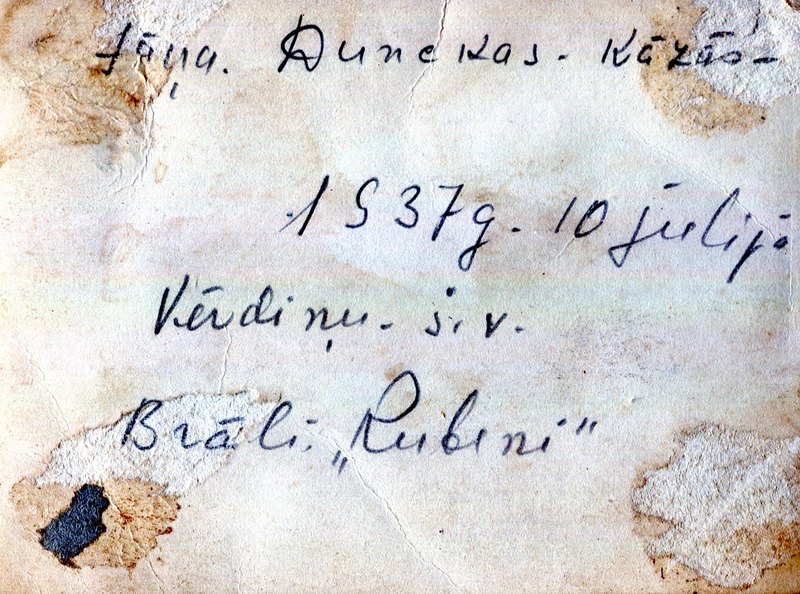 Jāņa. Dunckas. Kāzās-
1937g. 10 jūlijā
Vērdiņu. j.v.
Brāļi. „Rubeņi"